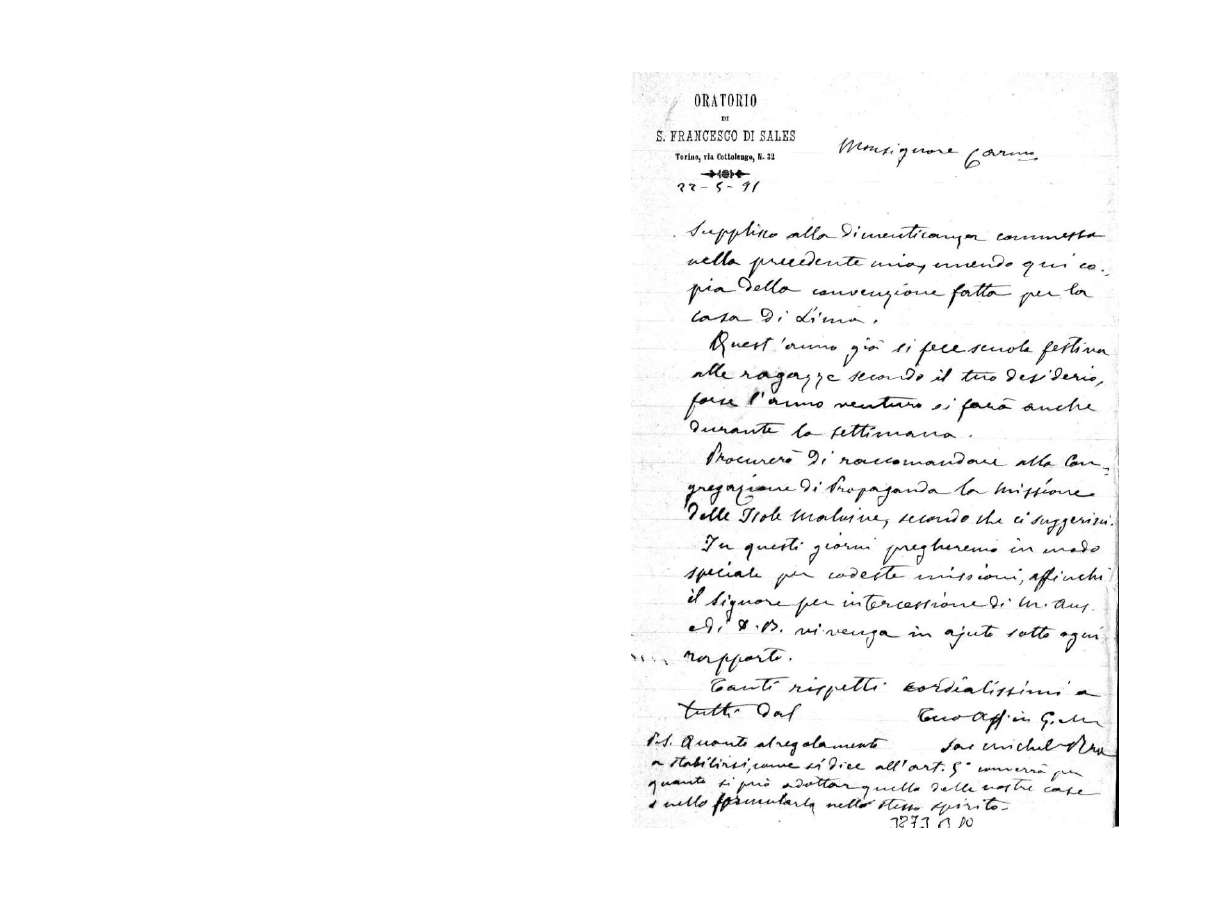 ORATORIO
DI
S. FRANCESCO DI SALES
Torino, via Cottolengo, N. 32
22-5-91
Monsignore Carmo
Supplisco alla dimenticanza commessa
nella precedente mia, unendo qui co-
pia della convenzione fatta per la
casa di Lima.
Quest'anno già si fece scuola festiva
alle ragazze secondo il tuo desiderio,
forse l'anno venturo si farà anche
durante la settimana.
Procurerò di raccomandare alla Con-
gregazione di Propaganda la Missione
delle Isole Malvine, secondo che ci suggerisci.
In questi giorni pregheremo in modo
speciale per codeste missioni, affinchè
il Signore per intercessione di M. Aus.
e di D. B. vi venga in ajuto sotto ogni
rapporto.
Tanti rispetti cordialissimi a
tutti dal
Tuo Aff. in G. e M.
Sac Michele Rua
P.S. Quanto al regolamento
a stabilirsi, come si dice all'art. 5° converrà per
quanto si può adottar quello delle nostre case
e nello formularlo nello stesso spirito.